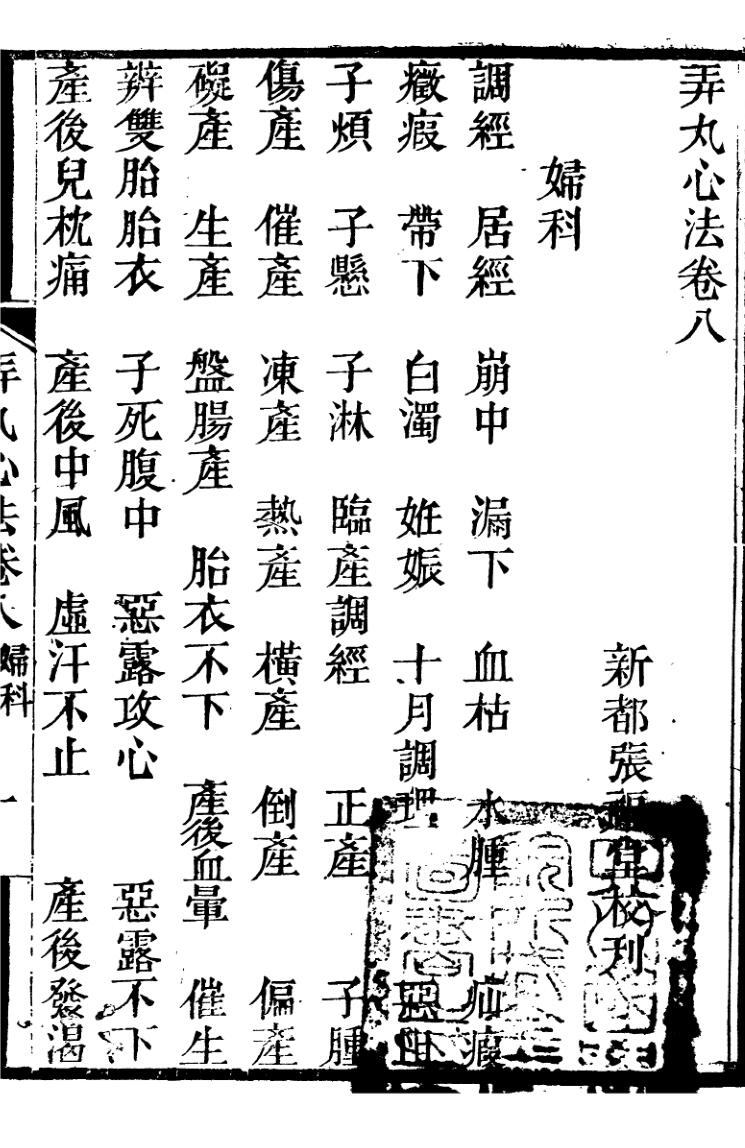 弄丸心法卷八
新都張 堂校刊
婦科
調經 居經 崩中 漏下 血枯 水腫 疝瘕
癥瘕 帶下 白濁 妊娠 十月調理 惡阻
子煩 子懸 子淋 臨產調經 正產 子腫
傷產 催產 凍產 熱產 橫產 倒產 偏產
礙產 生產 盤腸產 胎衣不下 產後血暈 催生
辨雙胎胎衣 子死腹中 惡露攻心 惡露不下
產後兒枕痛 產後中風 虛汗不止 產後發渴
弄丸心法卷八 婦科 一